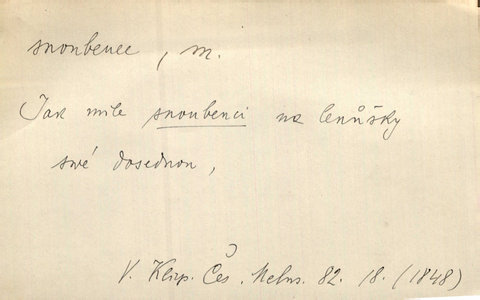 snoubenec, m.
Jak mile snoubenci na lenůšky
své dosednou,
V. Klicp. Čes. Melus. 82. 18. (1848)